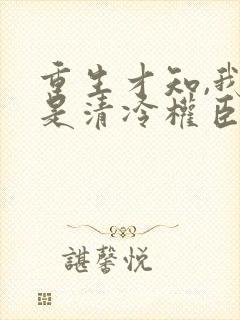 重生才知,我
是清冷權臣
諶馨悦